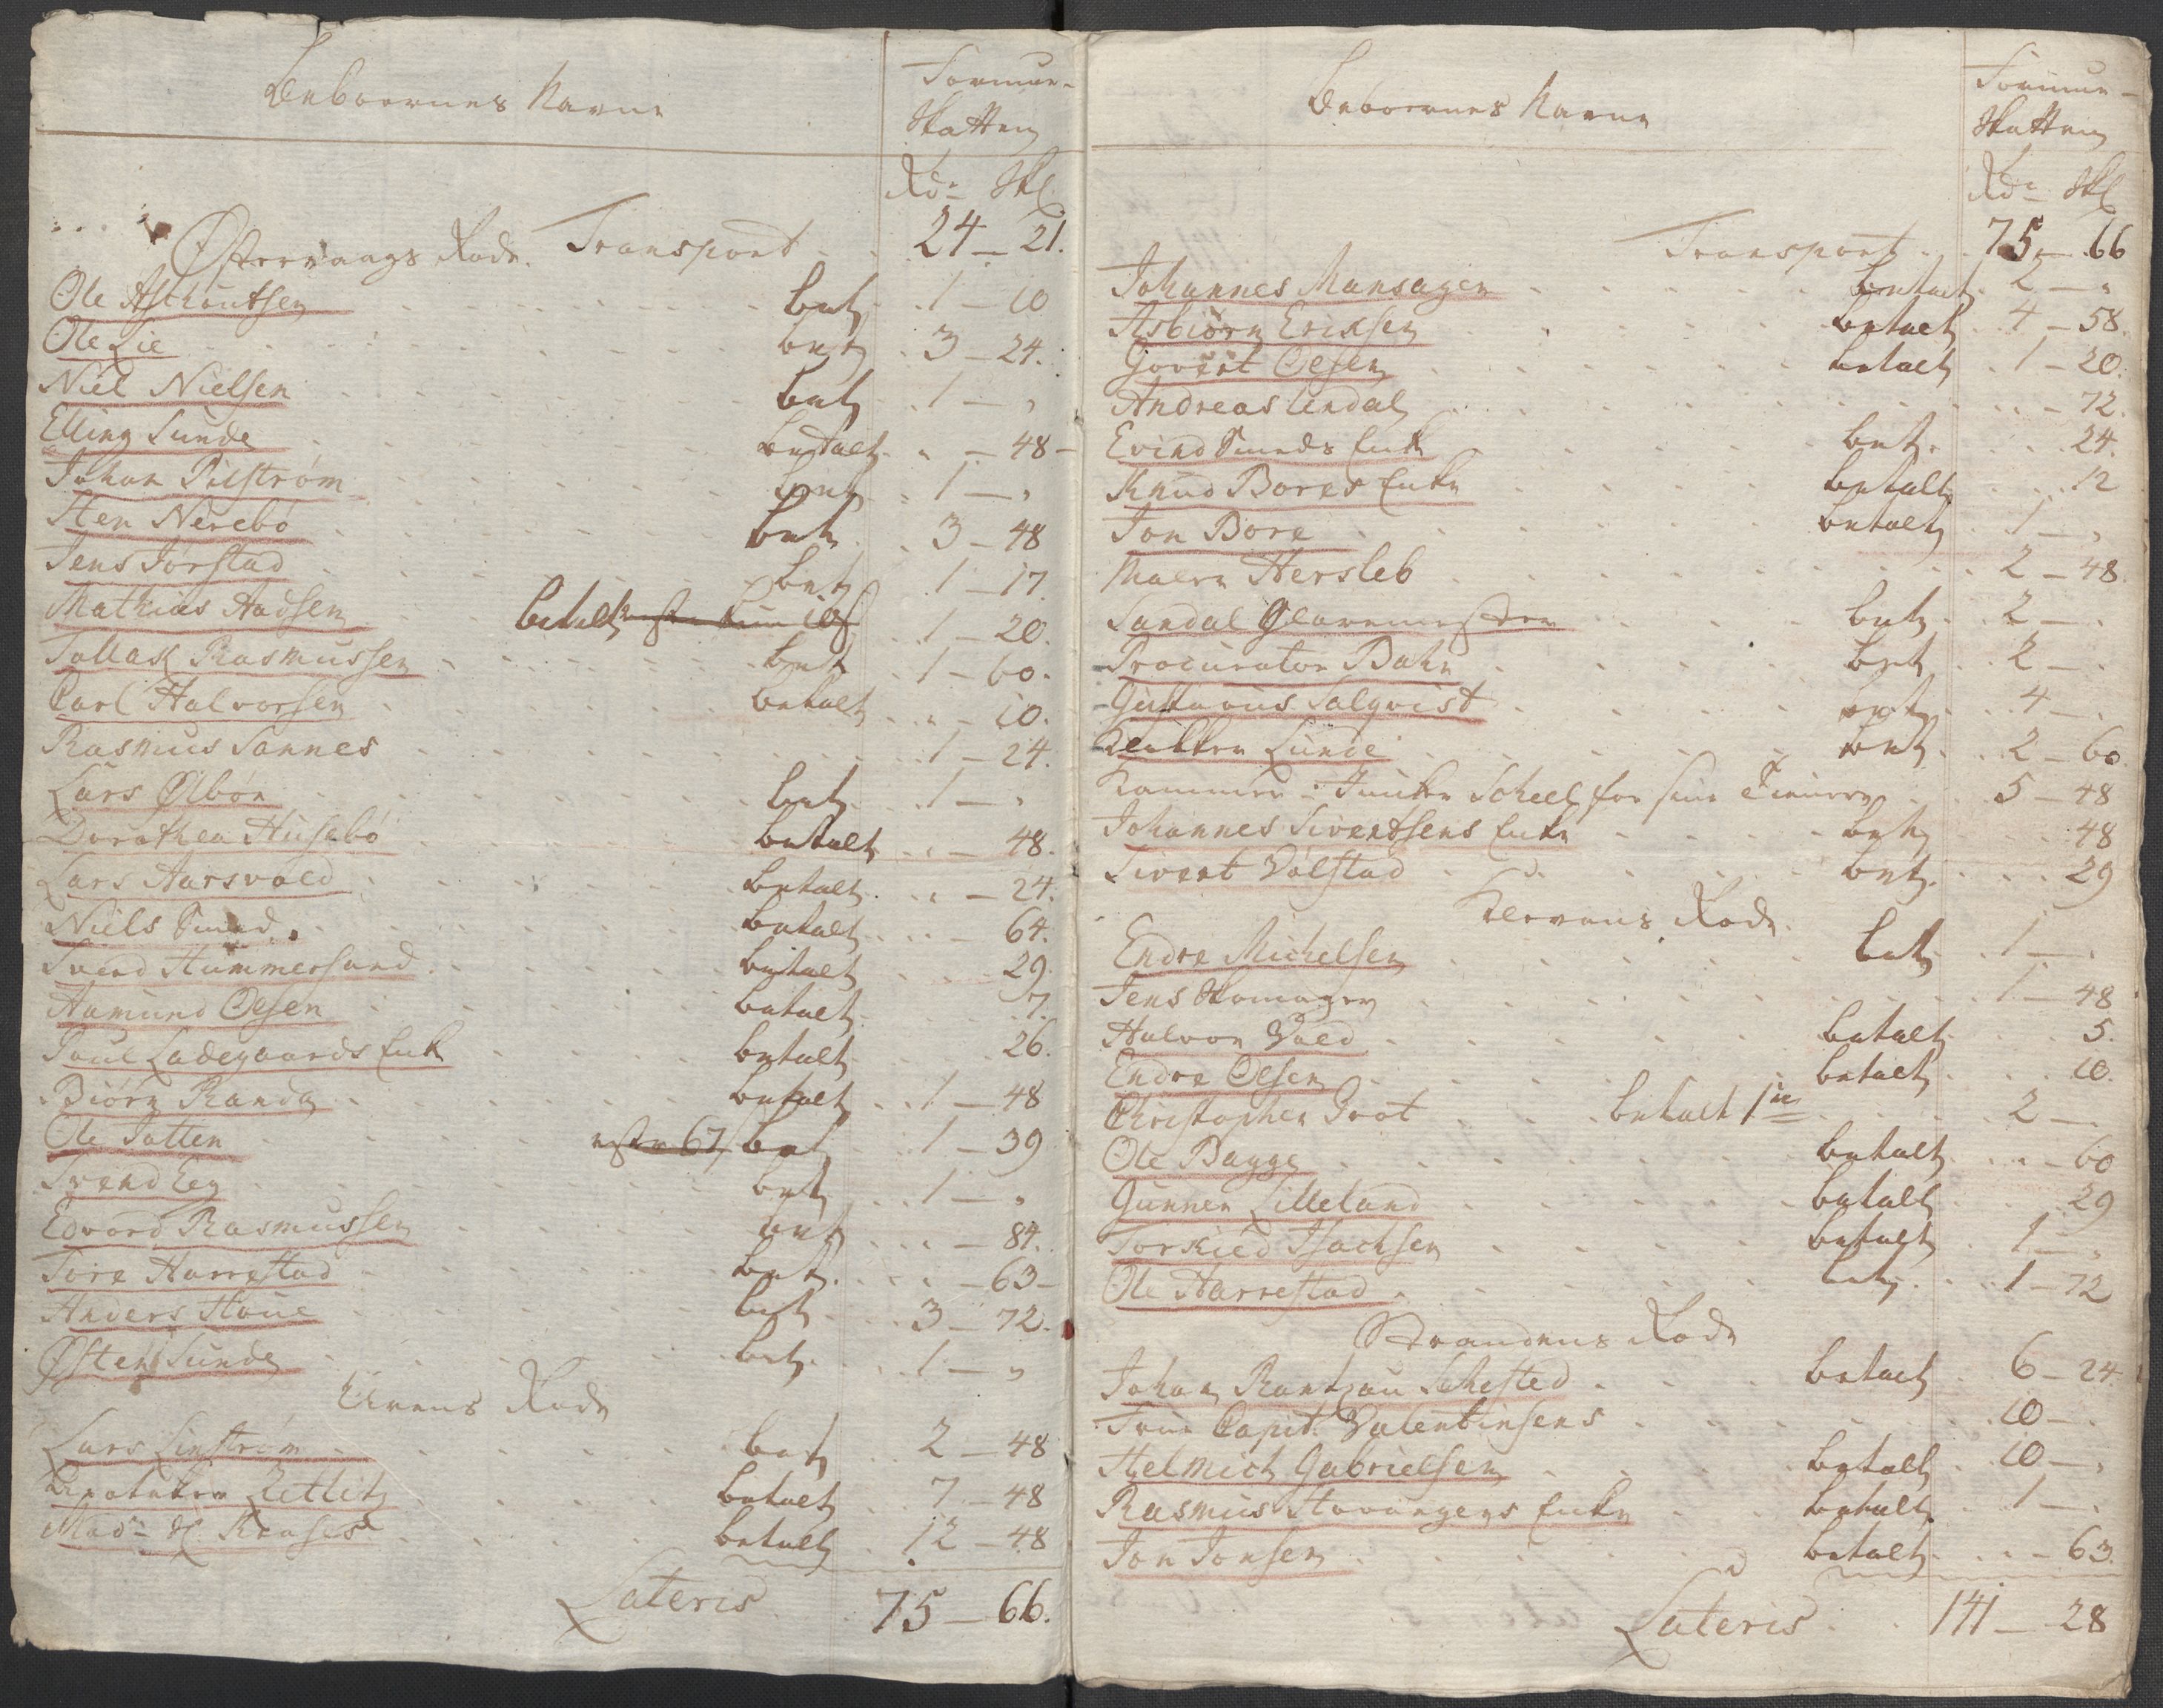 Beboernes Navne
Formue-
Skatten
Rdr Skl
Østervaags Rode. Transport 24 - 21.
Ole Aschoutsen bet 1 - 10
Ole Lie bet 3 - 24.
Niel Nielsen bet 1 - "
Elling Lunde betalt " - 48 -
Johan Pilstrøm bet 1 - "
Sten Nerebø bet 3 - 48
Jens Jørstad bet 1 - 17
Mathias Aadsen betalt 1 - 20.
Tollak Rasmussen bet 1 - 60.
Carl Halvorsen betalt " - 10.
Rasmus Sannes 1 - 24.
Lars Ølbør bet 1 - "
Dorothea Husebø betalt " - 48.
Lars Aarsvold betalt " - 24.
Niels Smed betalt - 64.
Svend Hummersand betalt 29.
Aamund Olsen betalt 7.
Poul Ladegaards Enke betalt 26.
Biørn Randa betalt 1 - 48
Ole Jatten reste 67 bet 1 - 39
Svend Eeg bet 1 - "
Edvard Rasmussen bet " - 84.
Tore Harrestad bet. " - 63 -
Anders Houe bet 3 - 72.
Østen Lunde bet 1 - "
Ureens Rode
Lars Linstrøm bet 2 - 48
Apoteker Zetlitz betalt 7 - 48
Madm Sl. Krusis betalt 12 - 48
Lateris 75 - 66.
Beboernes Navne
Formue-
Skatten
Rdr Skl
Transport 75 - 66
Johannes Mansager betalt 2 - "
Asbiørn Eriksen betalt 4 - 58.
Govert Olsen betalt 1 - 20.
Andreas Undal - 72.
Evind Smeds Enke bet. 24.
Knud Bores Enke betalt 12
Jon Bore betalt 1 - "
Maler Hersleb 2 - 48.
Sandal Glarmester bet 2 - .
Procurator Bahr bet 2 - .
Gustavus Salqvist bet 4 - .
Klokker Lunde bet 2 - 60
Kammer-Junker Scheel for sine Tienere 5 - 48
Johannes Sivertsens Enke bet 48
Sivert Vølstad bet. 29
Klevens Rode.
Endre Michelsen bet 1 - .
Jens Skomager 1 - 48
Halvor Vold betalt 5.
Endre Olsen betalt 10.
Christopher Grot betalt 1 2 - .
Ole Bagge betalt " - 60
Gunner Lilleland betalt 29
Torkild Isachsen betalt 1 - "
Ole Harrestad bet. 1 - 72
Strandens Rode
Johan Rantzau Sehested betalt 6 - 24
Frue Capit. Valentinsens 10 - .
Helmich Gabrielsen betalt 10 - "
Rasmus Stavangers Enke betalt 1 - .
Jon Jonsen betalt - 63.
Lateris 141 - 28